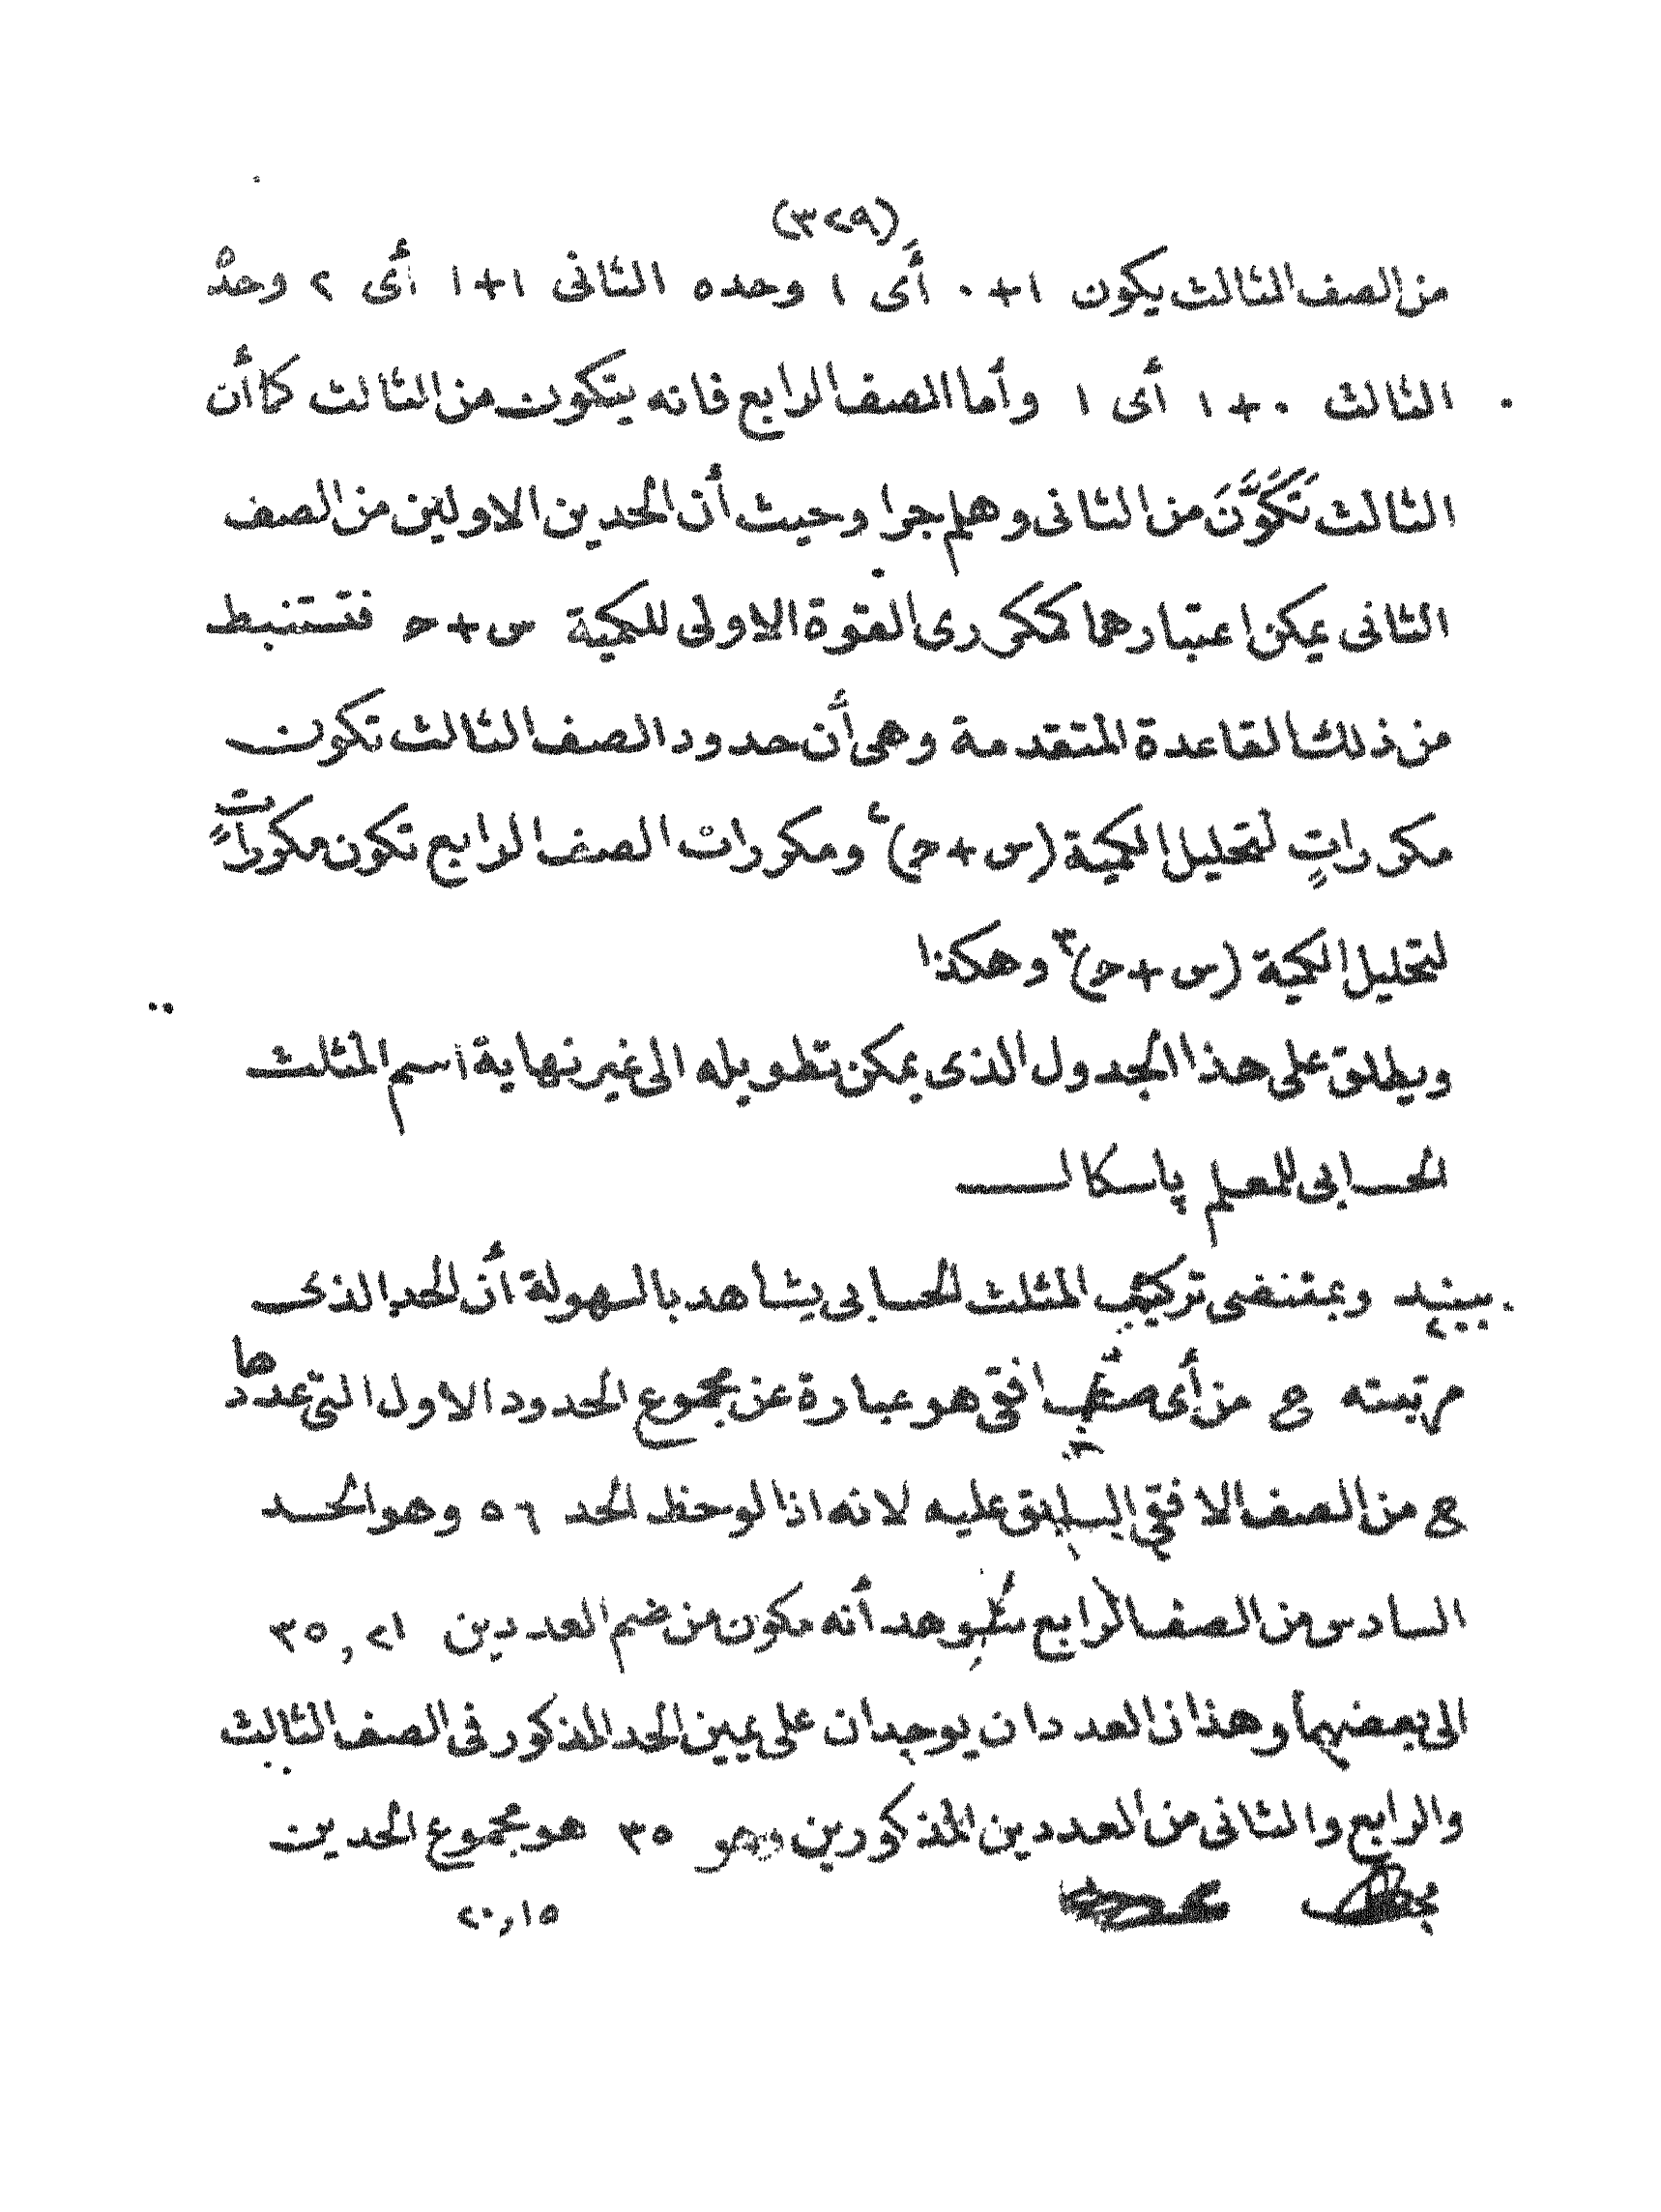 (٣٢٩)
من الصف الثالث يكون ١+٠ أى ١ وحده الثانى ١+١ أى ٢ وحدّه
الثالث ٠+١ أى ١ وأما الصف الرابع فانه يتكون من الثالث كما أن
الثالث تَكَوَّنَ من الثانى وهلم جرا وحيث أن الحدين الاولين من الصف
الثانى يمكن اعتبارهما كمكررى القوة الاولى للكمية س+حـ فتستنبط
من ذلك القاعدة المتقدمة وهى أن حدود الصف الثالث تكون
مكرراتٍ لتحليل الكمية (س+حـ)٢ ومكررات الصف الرابع تكون مكرراتٍ
لتحليل الكمية (س+حـ)٣ وهكذا
ويطلق على هذا الجدول الذى يمكن تطويله الى غير نهاية اسم المثلث
الحسابى للمعلم پاسكال
وبمقتضى تركيب المثلث الحسابى يشاهد بالسهولة أن الحد الذى
مرتبته ع من أى صف افقى هو عبارة عن مجموع الحدود الاول التى عددها
ع من الصف الافقى السابق عليه لانه اذا لوحظ الحد ٥٦ وهو الحد
السادس من الصف الرابع شوهد أنه مكون من ضم العددين ٢١,٣٥
الى بعضهما وهذان العددان يوجدان على يمين الحد المذكور فى الصف الثالث
والرابع والثانى من العددين المذكورين وهو ٣٥ هو مجموع الحدين
١٥,٢٠